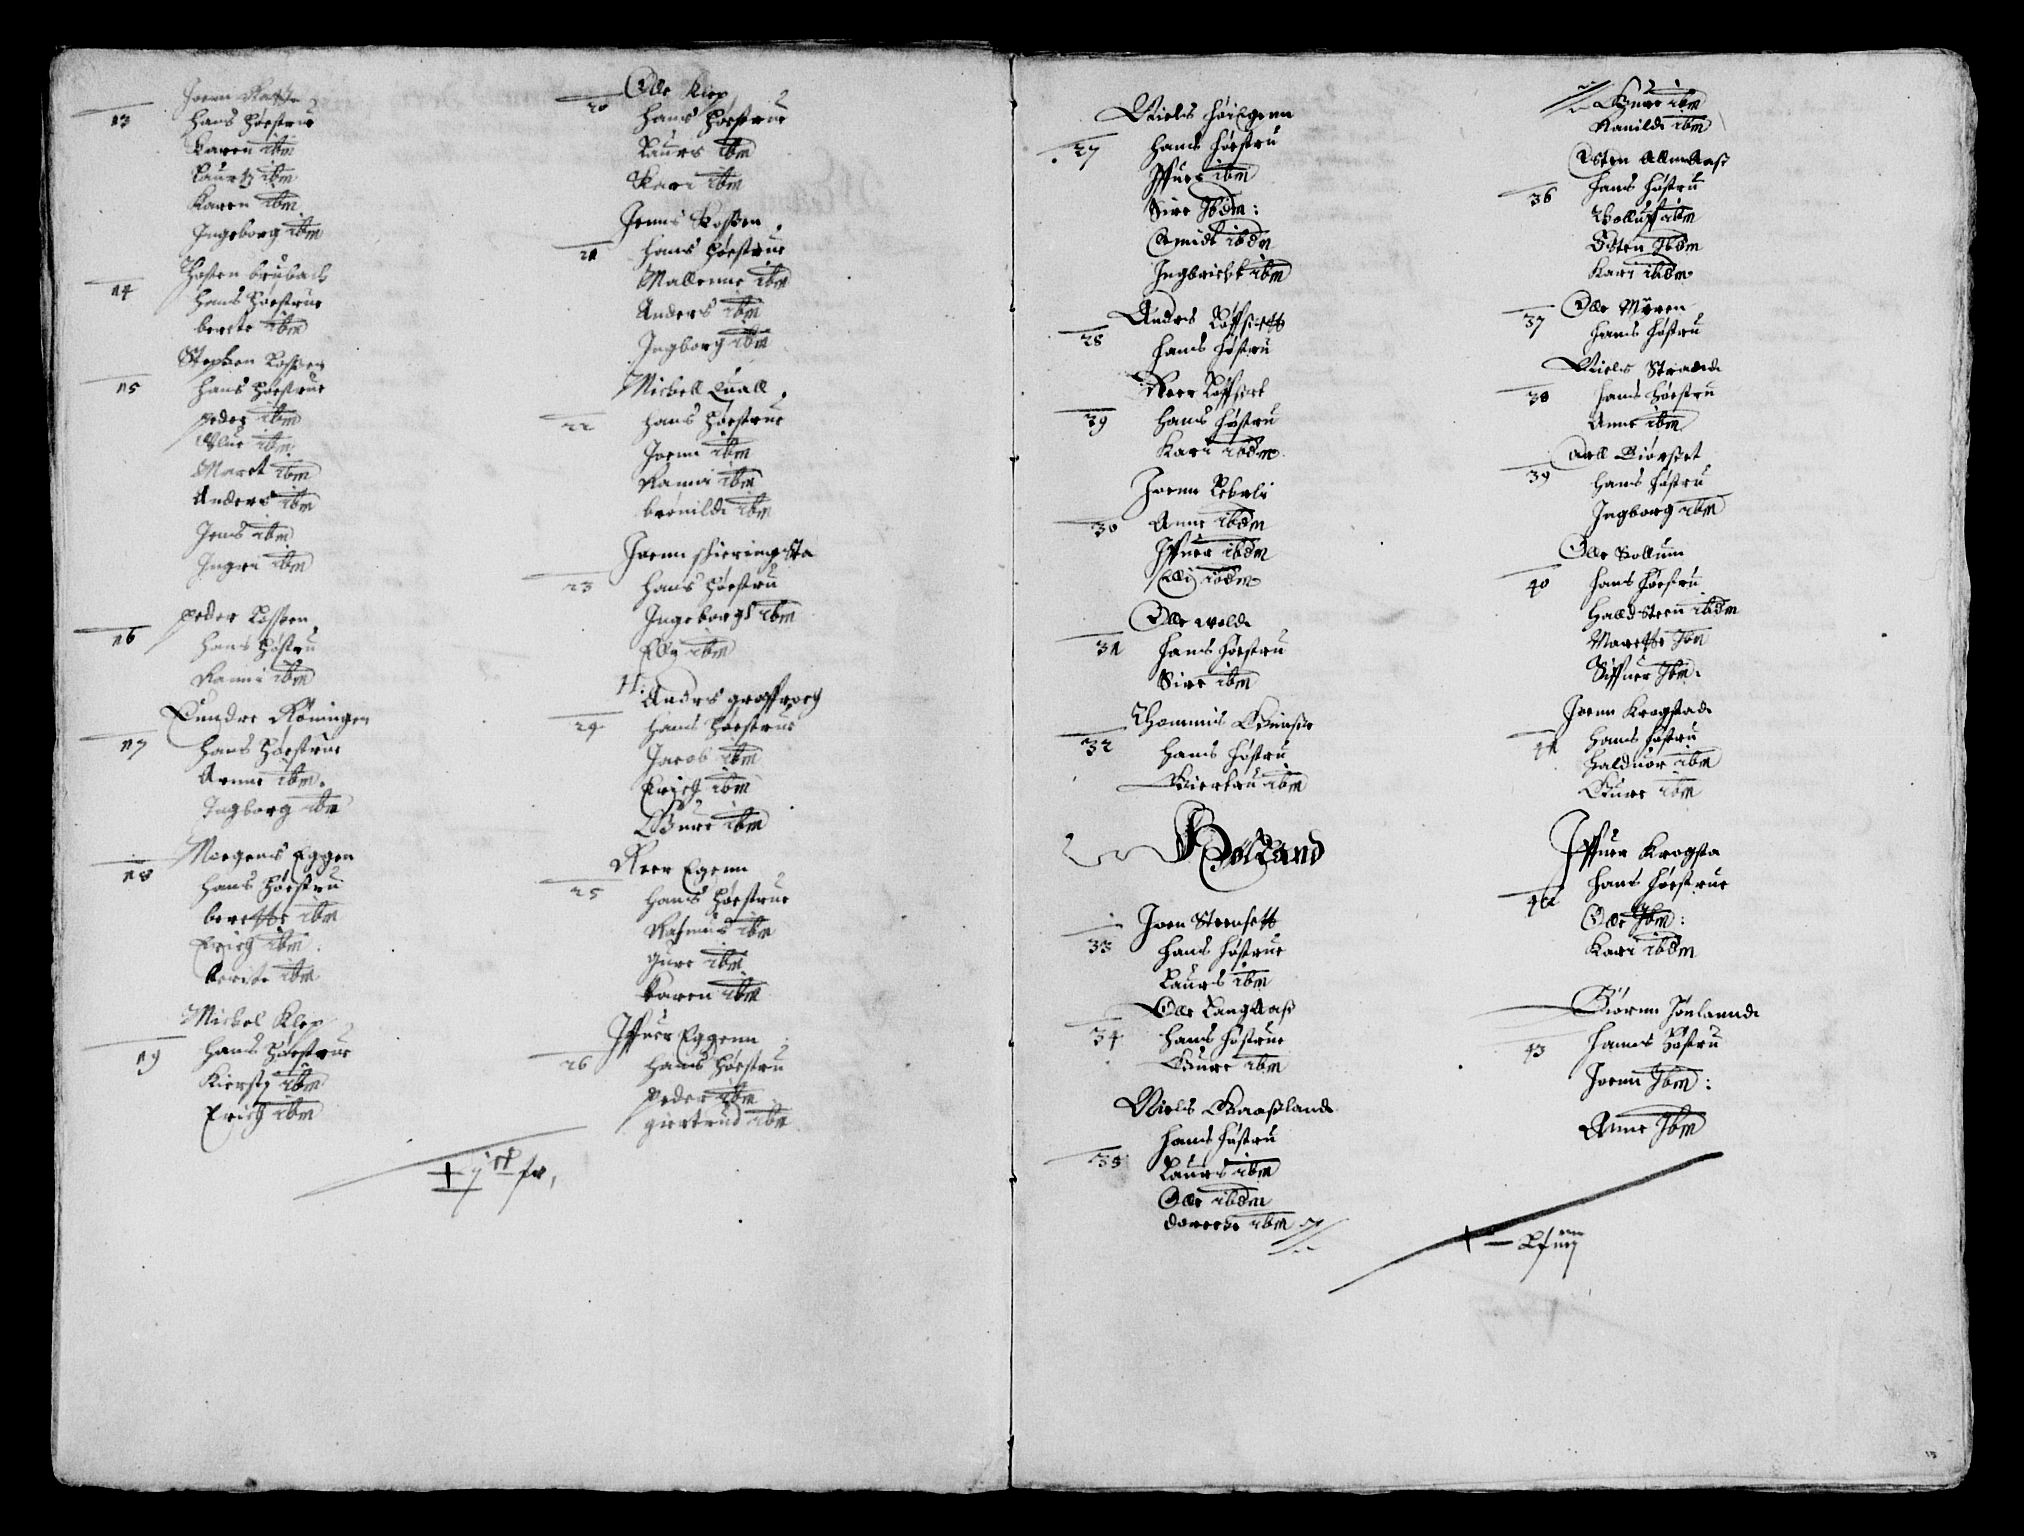 13
Joenn
hans høestrue
Karen ibm
Laurtz ibm
Karen ibm
Ingeborg ibm
14
Østen brubach
hans høestrue
berete ibm
15
Stephen Lossen
hans høestrue
peder ibm
Oluc ibm
Maret ibm
Anders ibm
Jens ibm
Ingri ibm
16
peder Lossen
hans høstru
Ranni ibm
17
Gundre Røningen
hans høestrue
Arnne ibm
Ingborg ibm
18
Mogens Eggen
hans høestru
berette ibm
Erich ibm
berite ibm
19
Mickel Klep
hans høestrue
Kiersti ibm
Erich ibm
20
Olle Klep
hans høestrue
Laurs ibm
Kari ibm
21
Jenns Lossen
hans høestrue
Mallenne ibm
Anders ibm
Ingborg ibm
22
Mickell Quall
hans høestrue
Joenn ibm
Rannii ibm
brønilde ibm
23
Joenn skieringsta
hans høestru
Ingeborgh ibm
Elly ibm
24
H: Anders graffroch
hans høestrue
Jacob ibm
Erich ibm
Gure ibm
25
Reer Egenn
hans høestrue
Rasmus ibm
gure ibm
karen ibm
26
Iffuer Eggenn
hans høestru
peder ibm
giertrud ibm
27
Niels høiEgenn
hans høestru
Iffuer ibm
Sire Ibdm:
Gunild ibdm
Ingbricht ibm
28
Anders Løffsett
hans høstru
29
Reer Løffsett
hans høstru
Kari ibdm
30
Joenn Leberli
Anne ibdm
Iffuer ibdm
Elli ibdm
31
Olle welde
hans høestru
Sire ibm
32
Thommis Grindse
hans høstru
Biertru ibm
Hølland
33
Joen Steensett
hans høstrue
Laurs ibm
34
Olle Langaas
hans høstrue
Gure ibm
35
Niels Gaaslande
hans høstru
Laurs ibm
Olle ibdm
dorethe ibm
Gure ibm
Ranilde ibm
36
Østen Almaas
hans høstru
Lolluf ibm
Østen Ibdm
Kari ibdm
37
Olle Myren
hans høstru
38
Niels Strande
hans høestru
Anne ibm
39
Arll Biørset
hans høstru
Ingborg ibm
40
Olle Bollum
hans høestru
Halldsteen ibdm
Marette Ibm
Siffuer Ibm
41
Joenn Krogstade
hans høstru
haldnor ibm
Gure ibm
42
Iffuer Krogsta
hans høestrue
Olle Ibm:
Kari ibdm
43
Biørnn Hønlannde
hanns høstru
Joenn Ibm:
Anne Ibm